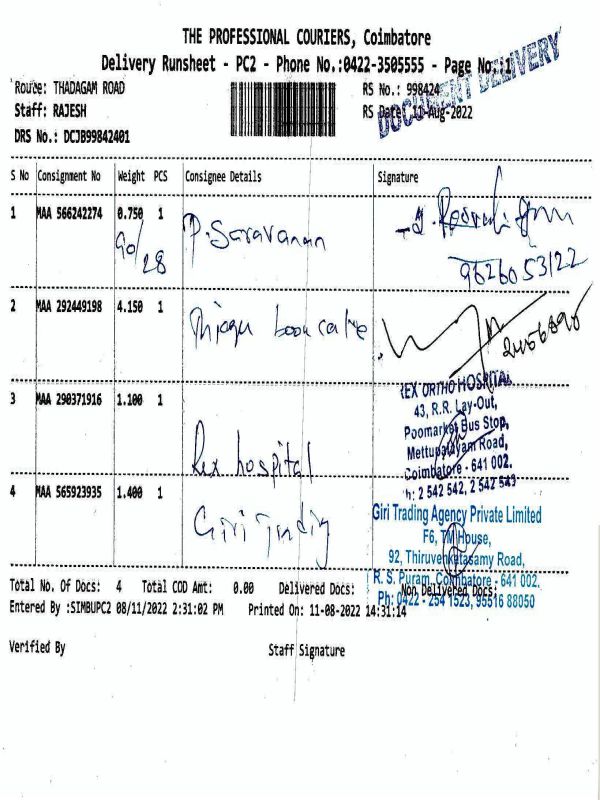 THE PROFESSIONAL COURIERS, Coimbatore
Delivery Runsheet - PC2 - Phone No.:0422-3505555 - Page No.:1
DOCUMENT DELIVERY
Route: THADAGAM ROAD
RS No.: 998424
Staff: RAJESH
RS Date: 11-Aug-2022
DRS No.: DCJB99842401
S No Consignment No Weight PCS Consignee Details Signature
1 MAA 566242274 0.750 1 P. Saravanan
90/28
9626053122
2 MAA 292449198 4.150 1
2456890
3 MAA 290371916 1.100 1 Rex hospital
REX ORTHO HOSPITAL
43, R.R. Lay-Out,
Poomarket Bus Stop,
Mettupalayam Road,
Coimbatore - 641 002.
Ph: 2 542 542, 2 542 543
4 MAA 565923935 1.400 1 Giri Trading
Giri Trading Agency Private Limited
F6, TM House,
92, Thiruvenketasamy Road,
R. S. Puram, Coimbatore - 641 002.
Ph: 0422 - 254 1523, 95516 88050
Total No. Of Docs: 4 Total COD Amt: 0.00 Delivered Docs: Non Delivered Docs:
Entered By :SIMBUPC2 08/11/2022 2:31:02 PM Printed On: 11-08-2022 14:31:14
Verified By Staff Signature